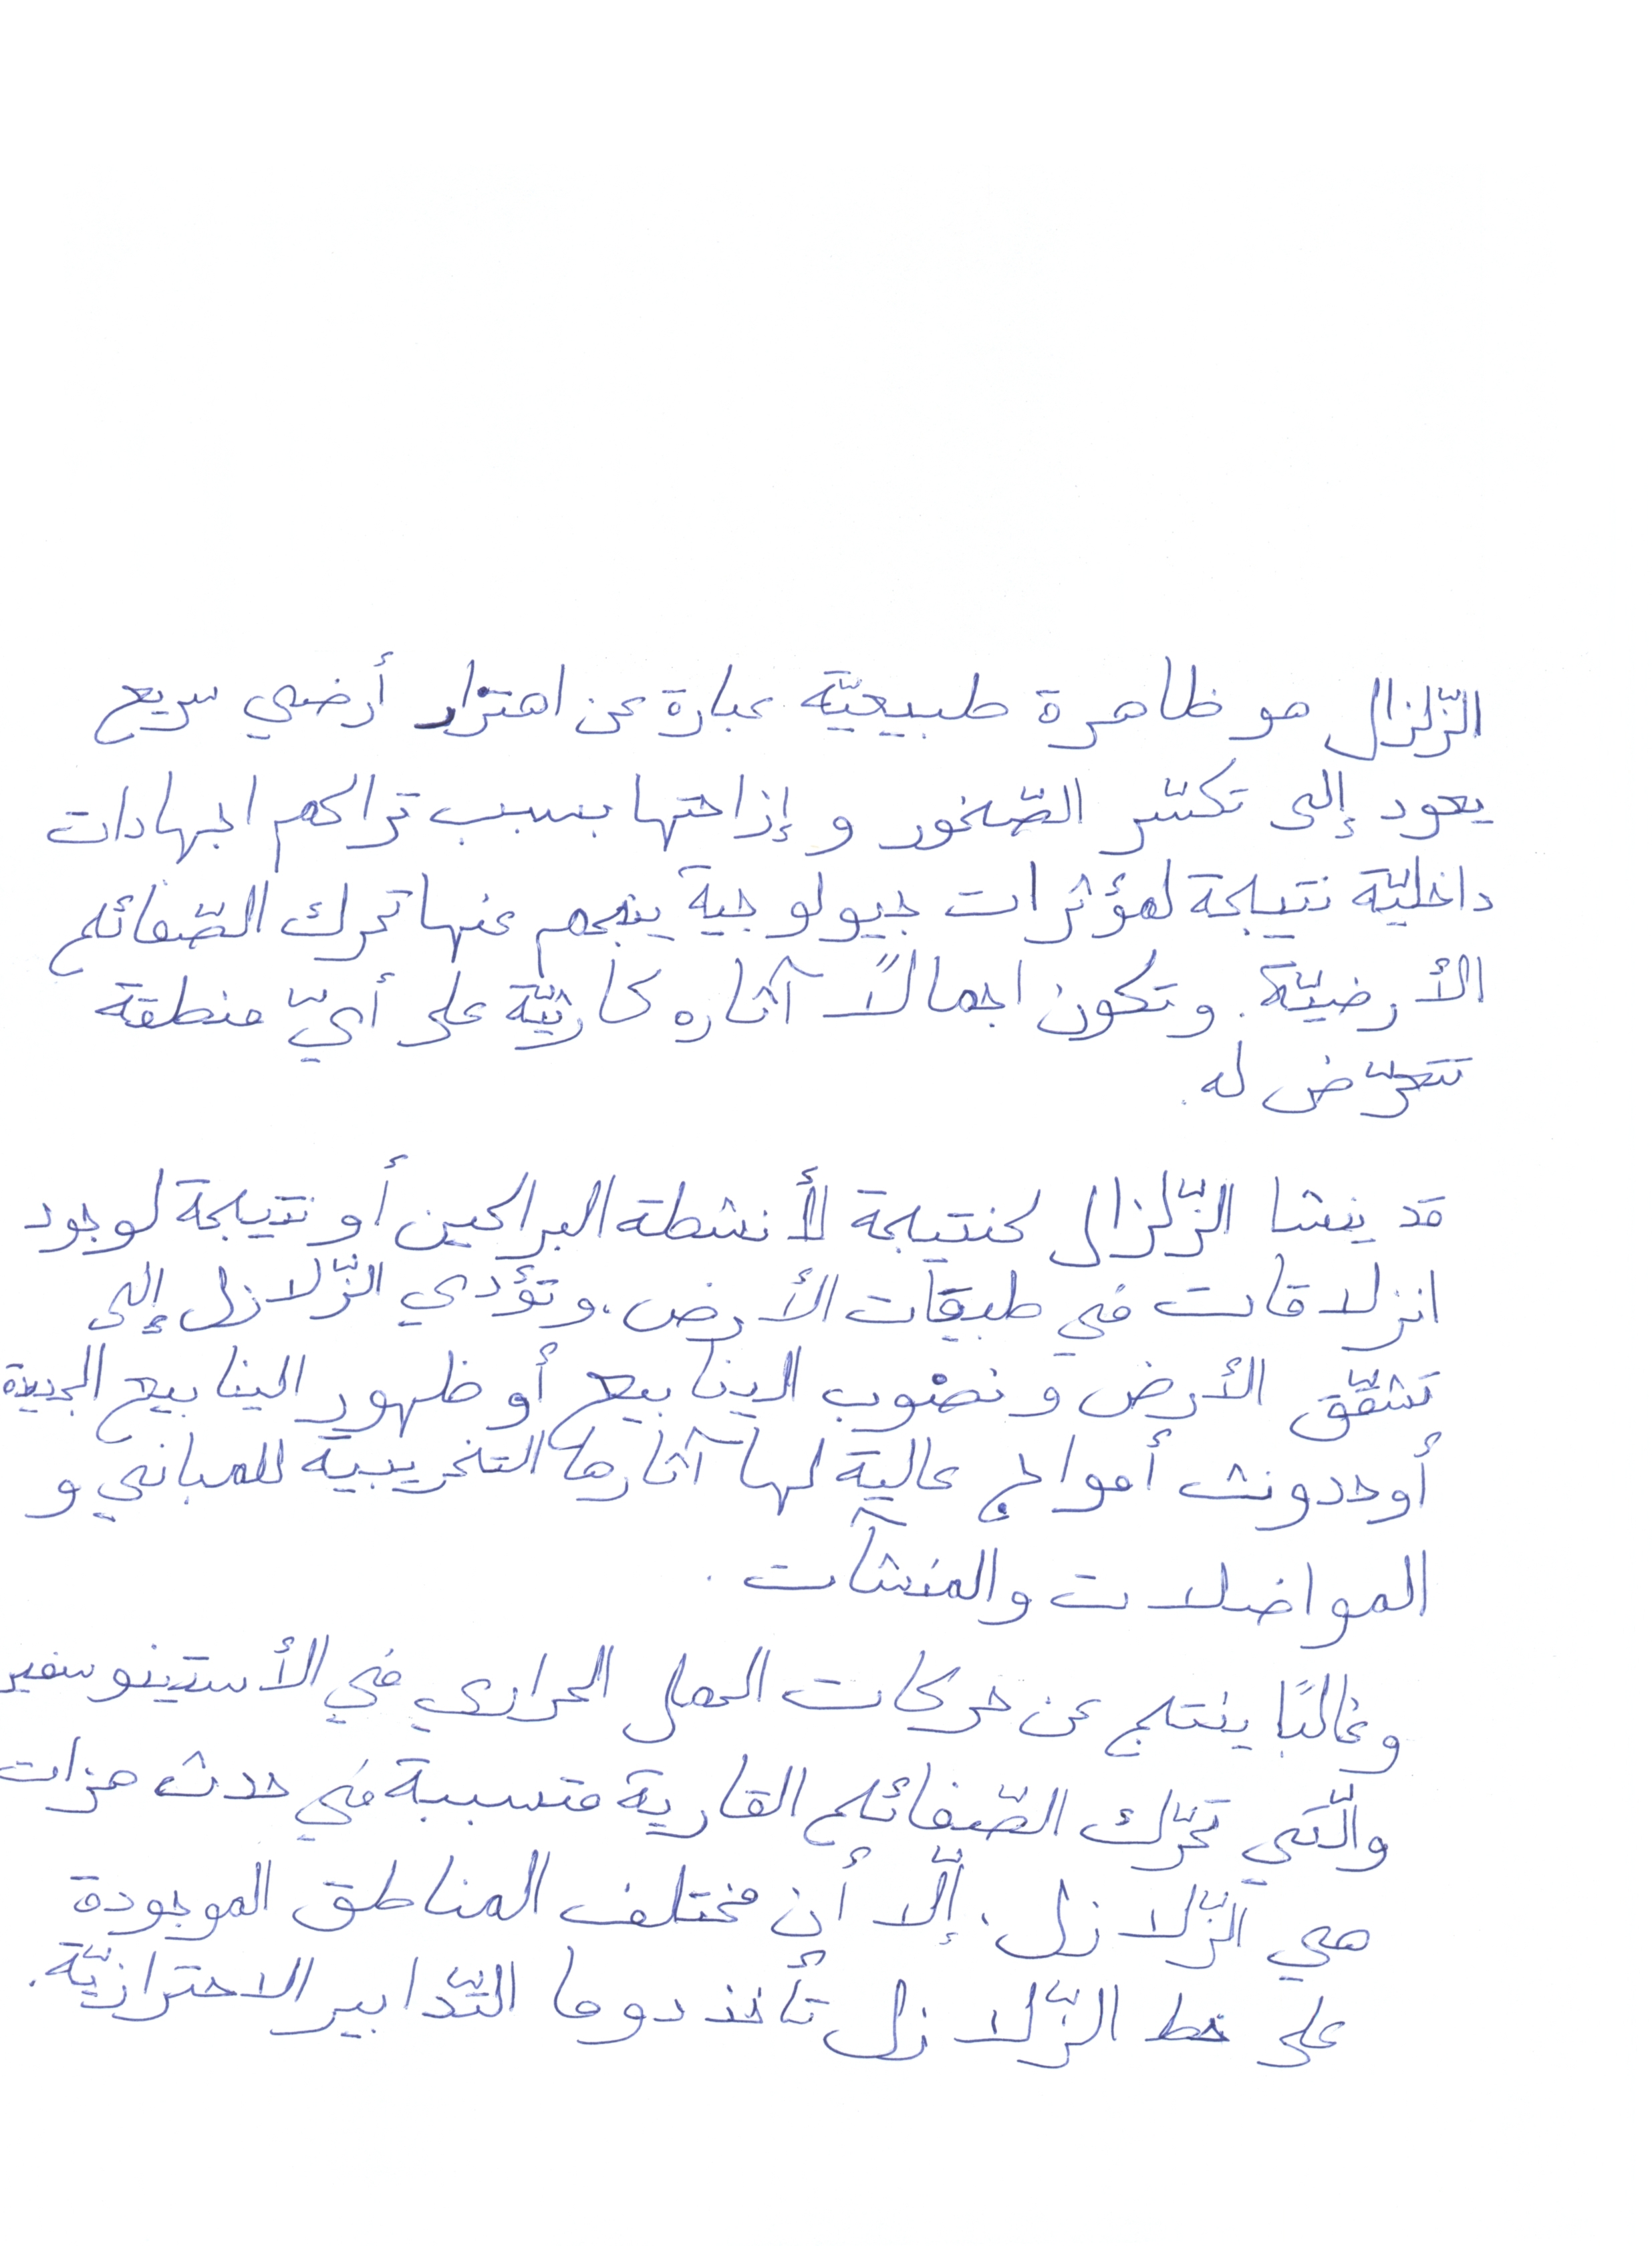 الزّلزال هو ظاهرة طبيعيّة عبارة عن اهتزار أرضي سريع
يعود إلى تكسّر الصّخور و إزاحتها بسبب تراكم اجهادات
داخليّة نتيجة لمؤثرات جيولوجية ينجم عنها تحرك الصّفائح
الأرضيّة. وتكون اجمالاً آثاره كارثيّة على أيّ منطقة
تتعرّض له.
قد ينشا الزّلزال كنتيجة لأنشطة البراكين أو نتيجة لوجود
انزلاقات في طبقات الأرض. وتؤدي الزّلازل إلى
تشقّق الأرض و نضوب الينابيع أو ظهور الينابيع الجديدة
أو حدوث أمواج عالية لها آثارها التخريبية للمباني و
المواضلات والمنشآت.
وغالبًا ينتج عن حركات الحمل الحراري في الأستينوسفير
والّتي تحرّك الصّفائح القارية متسببة في حدث هزات
هي الزّلازل. إلّا أن مختلف المناطق الموجودة
على خط الزّلازل تأخذ دوما التّدابير الاحترازيّة.